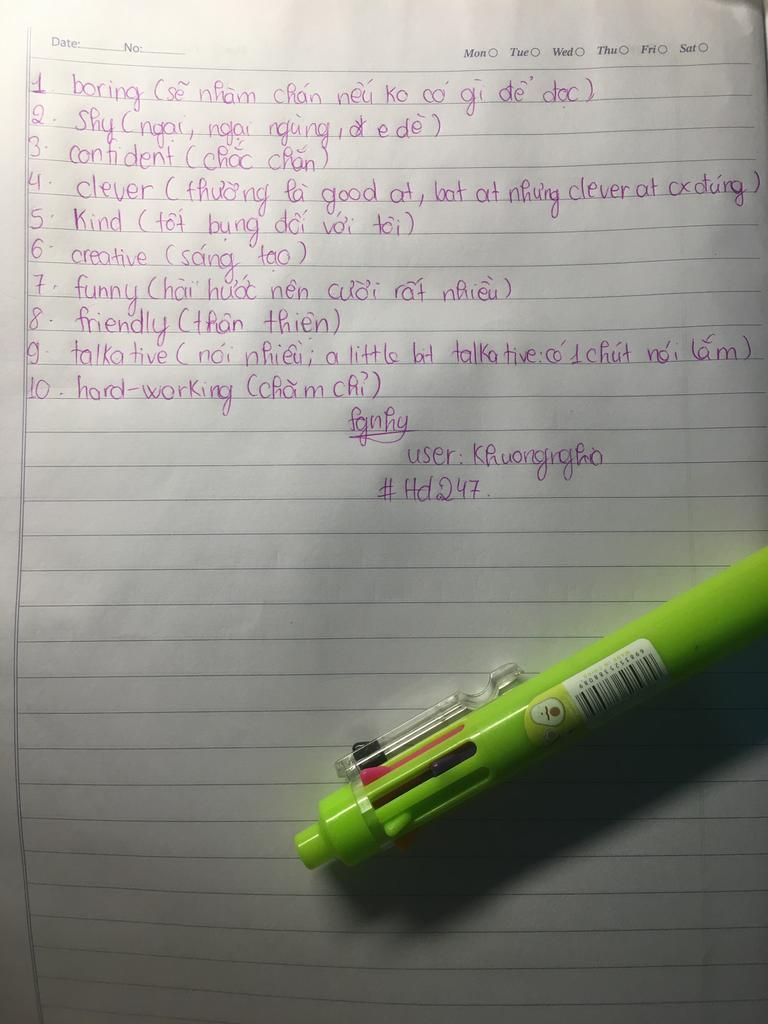 Date: No:
Mon Tue Wed Thu Fri Sat
1 boring (sẽ nhàm chán nếu ko có gì để đọc)
2. Shy (ngại, ngại ngùng, e dè)
3. confident (chắc chắn)
4. clever (thường là good at, bat at nhưng clever at cx đúng)
5. Kind (tốt bụng đối với tôi)
6. creative (sáng tạo)
7. funny (hài hước nên cười rất nhiều)
8. friendly (thân thiện)
9. talkative (nói nhiều; a little bit talkative: có 1 chút nói lắm)
10. hard-working (chăm chỉ)
fgnhy
user:
#Hd247.
6983125388089